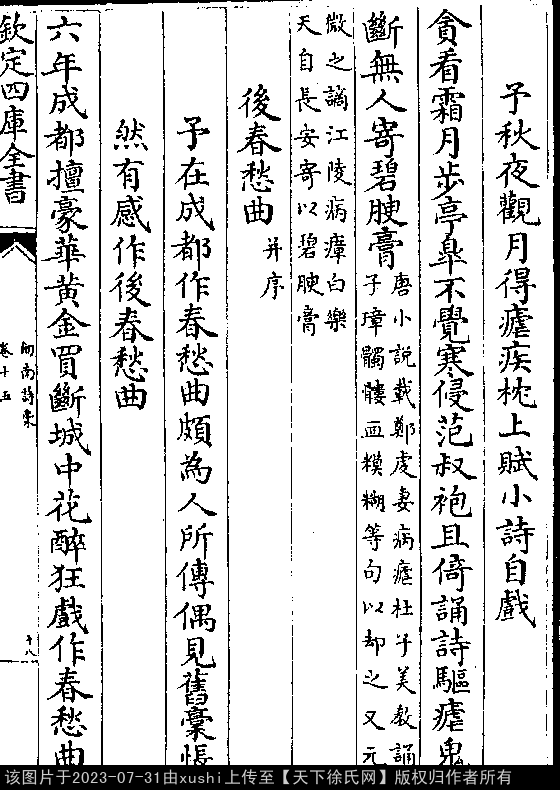 予秋夜觀月得瘧疾枕上賦小詩自戲
貪看霜月步亭臯不覺寒侵范叔袍且倚誦詩驅瘧鬼
斷無人寄碧腴膏
唐小說載鄭虔妻病瘧杜子美教誦
子璋髑髏血糢糊等句以却之又元
微之謫江陵病瘴白樂
天自長安寄以碧腴膏
後春愁曲 并序
予在成都作春愁曲頗為人所傳偶見舊藁悵
然有感作後春愁曲
六年成都擅豪華黃金買斷城中花醉狂戲作春愁曲
欽定四庫全書
劍南詩藁
卷十五
十八
该图片于2023-07-31由xushi上传至【天下徐氏网】版权归作者所有